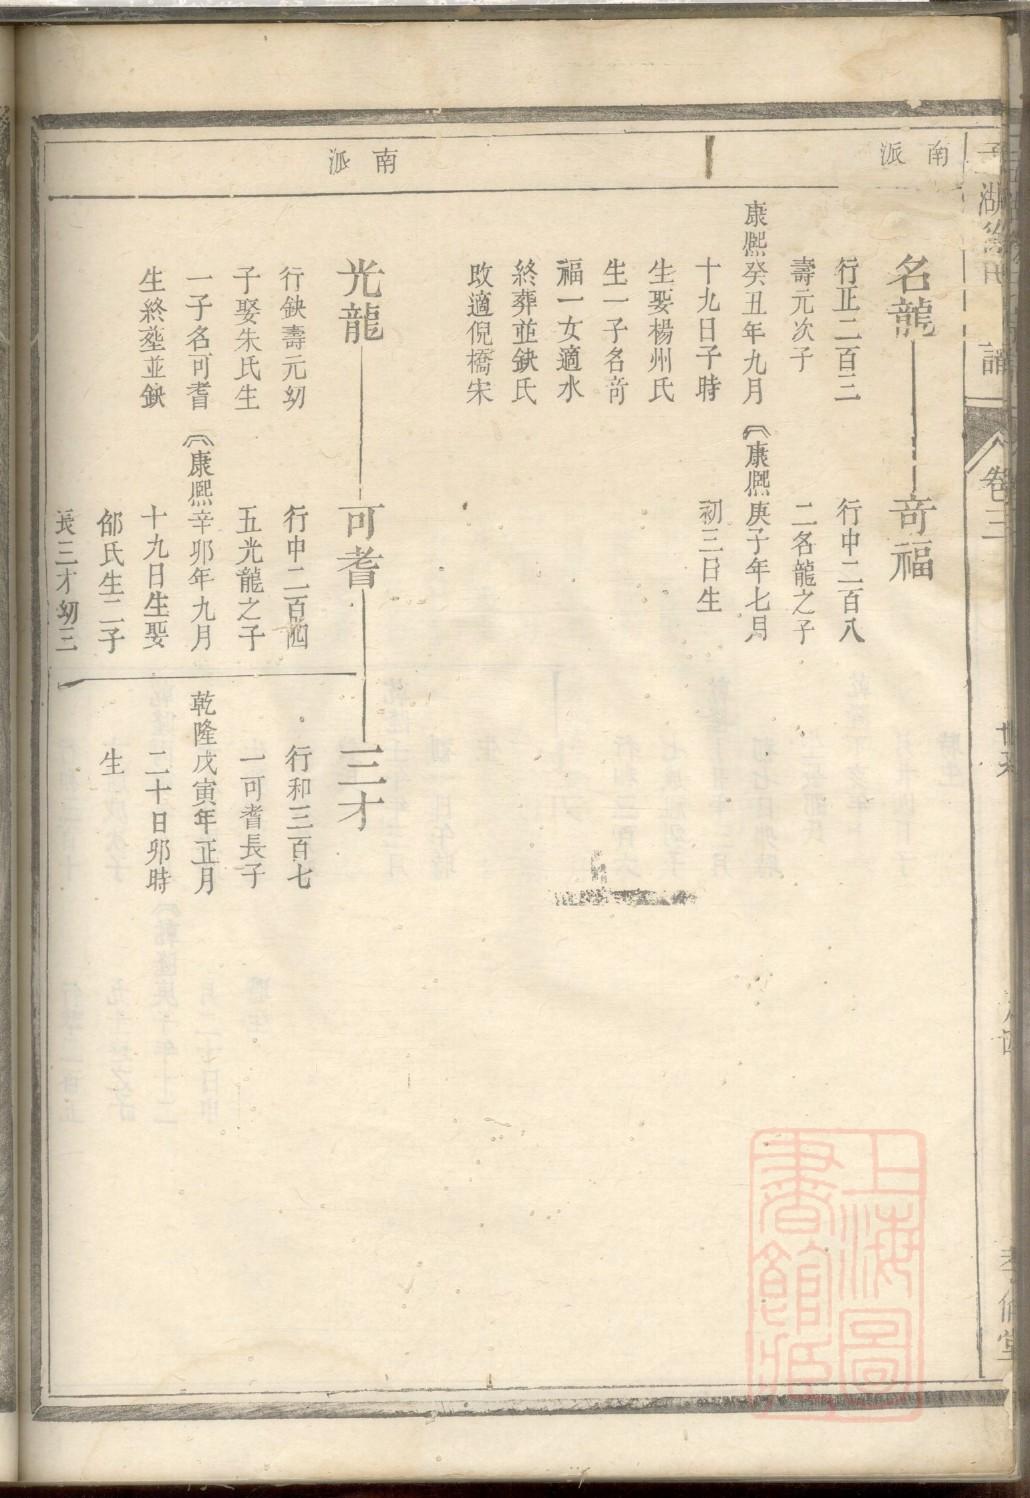 南派
名龍
行正二百三
壽元次子
康熙癸丑年九月
十九日子時
生娶楊州氏
生一子名竒
福一女適水
終葬並鈌氏
改適倪橋宋
竒福
行中二百八
二名龍之子
康熙庚子年七月
初三日生
南派
光龍
行鈌壽元㓜
子娶朱氏生
一子名可耆
生終塟並鈌
可耆
行中二百四
五光龍之子
康熙辛卯年九月
十九日生娶
邰氏生二子
長三才㓜三
三才
行和三百七
一可耆長子
乾隆戊寅年正月
二十日卯時
生
卷三
上海圖書館藏